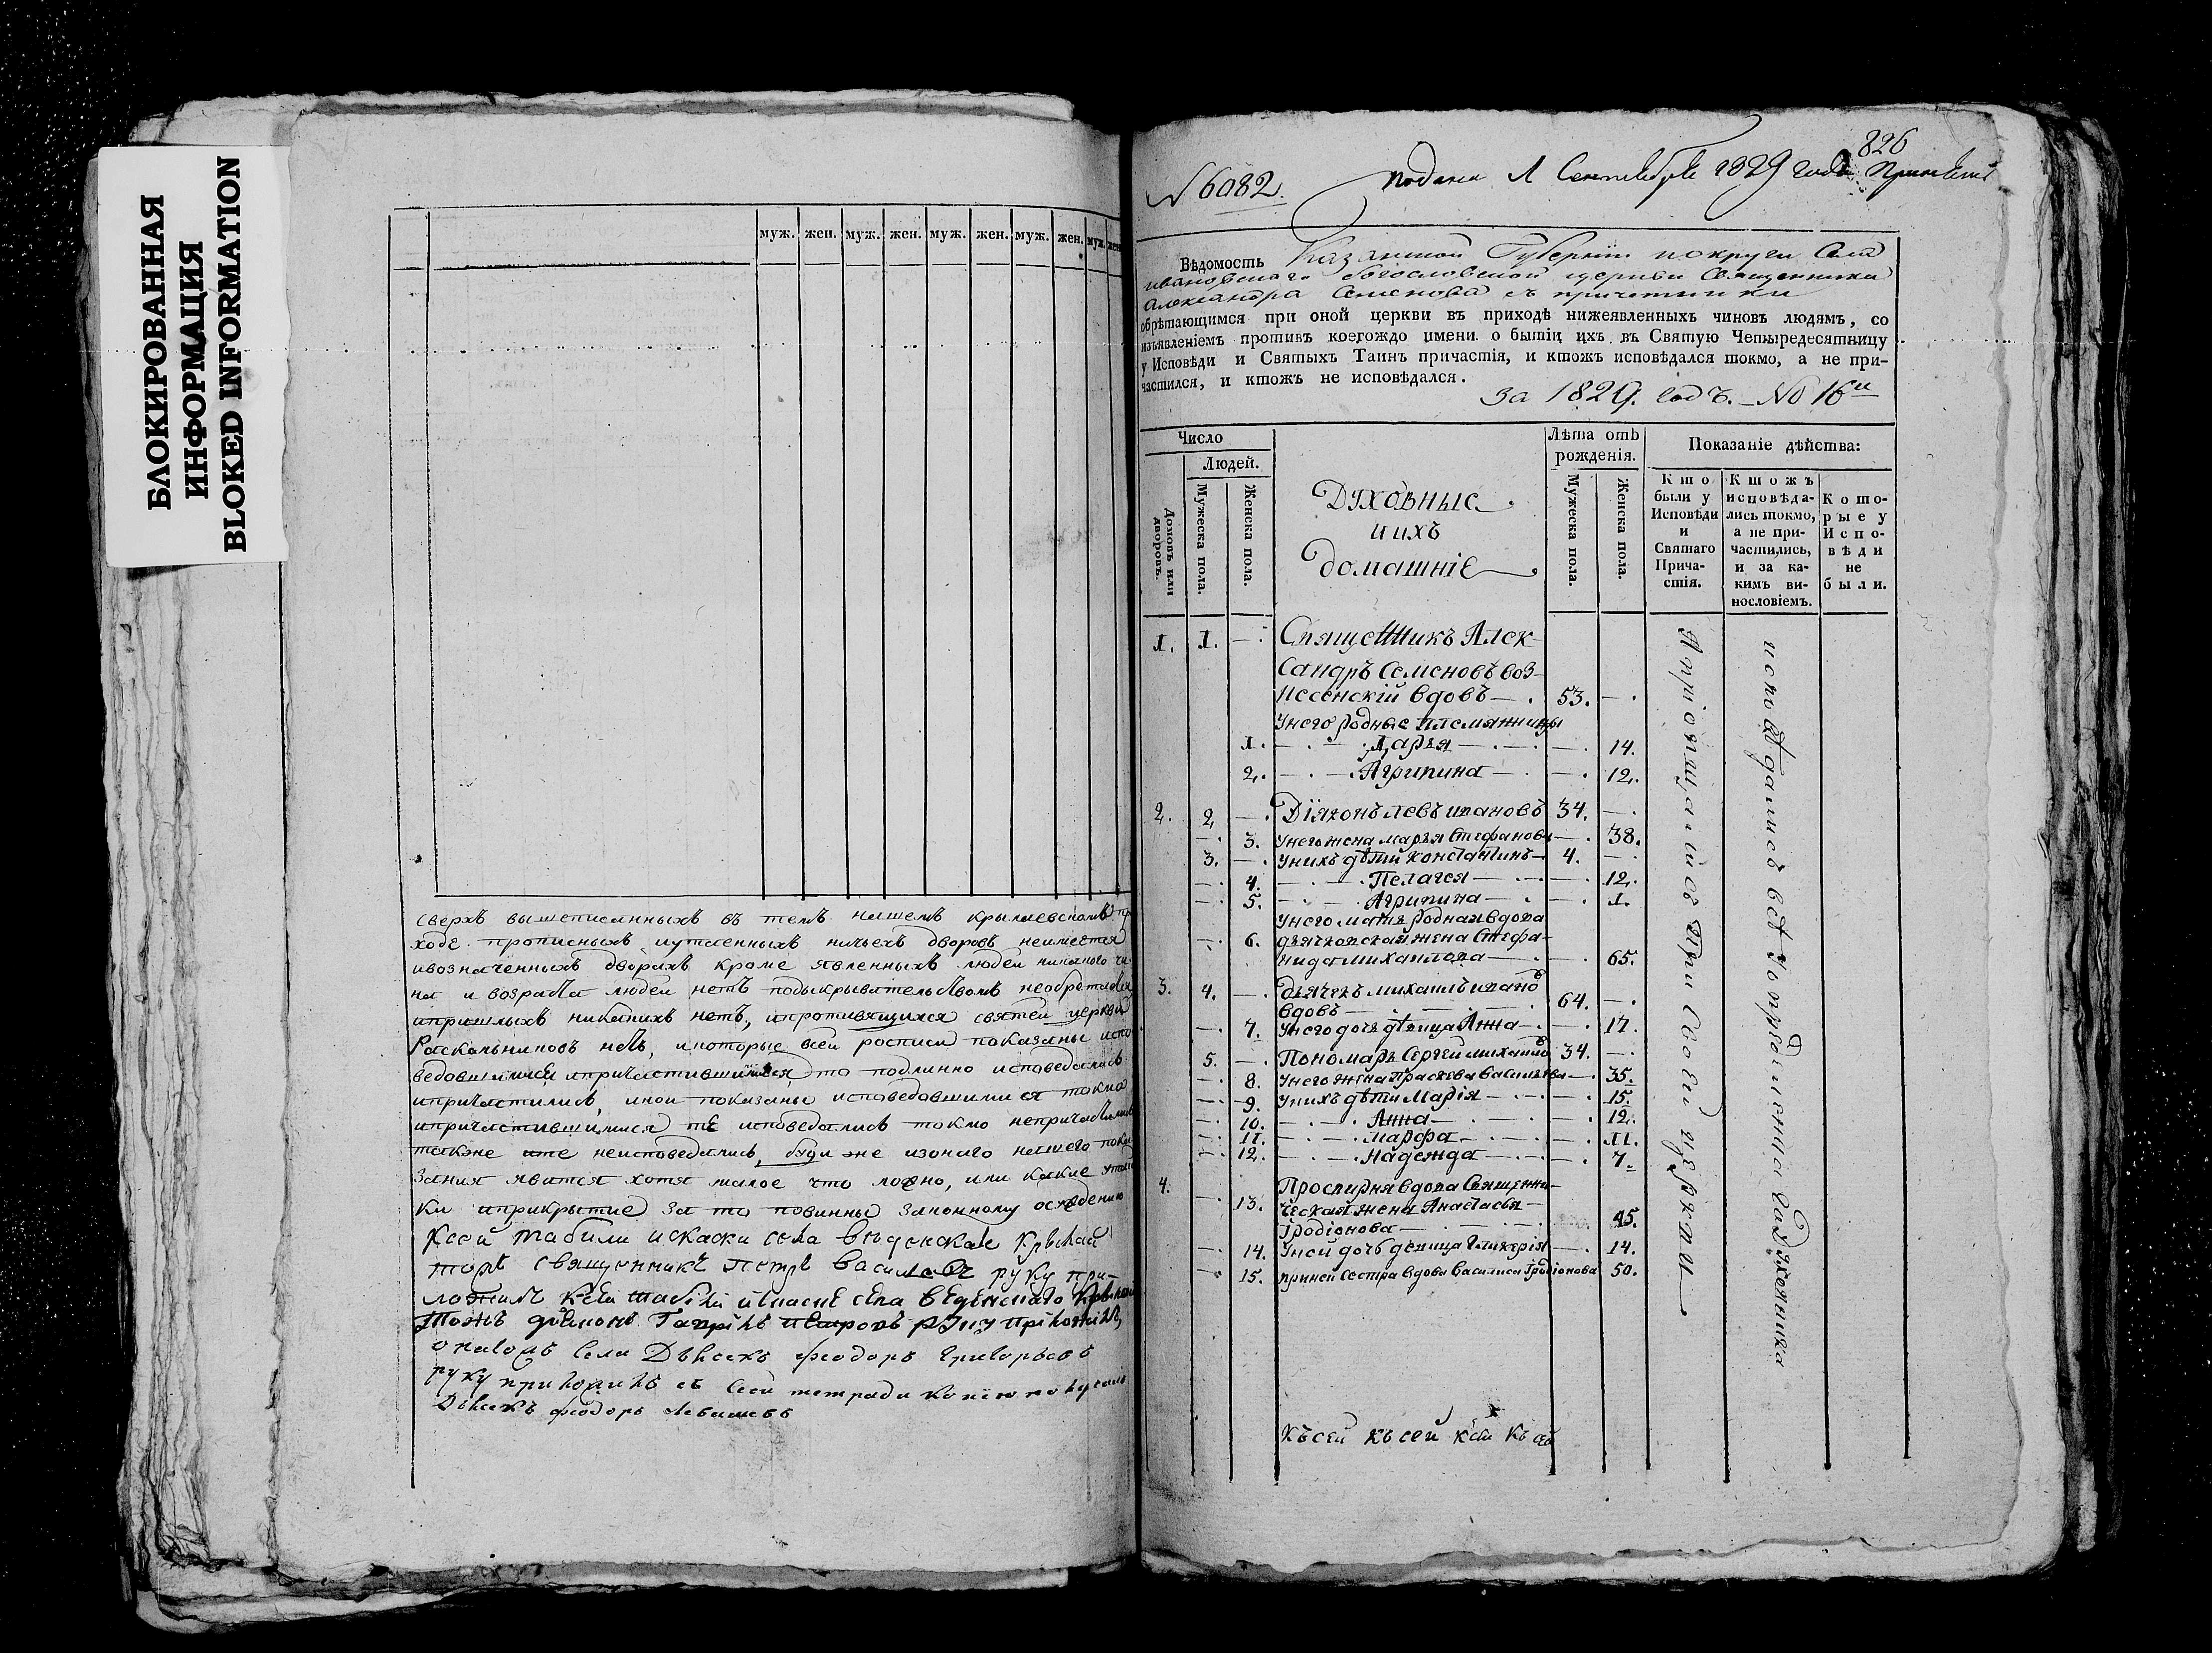 БЛОКИРОВАННАЯ
ИНФОРМАЦИЯ
BLOKED INFORMATION
муж. жен. муж. жен. муж. жен. муж. жен. муж. жен
сверхъ вышеписанныхъ въ темъ нашемъ
ходе прописныхъ иутаенныхъ ничьехъ дворовъ неимеется
ивозначенныхъ дворахъ кроме явленныхъ людей никакого чи
на ивозраста людей нетъ подыкрывательствомъ необретается
ипришлыхъ никакихъ нетъ, ипротивящихся святей церкви
Раскольниковъ нетъ, икоторые всей росписи показаны испо
ведовшимися ипричастившимися, то подлинно исповедались
ипричастились, икои показаны исповедовшимися токмо
те исповедались токмо непричастились
также неисповедались, буди же изонаго нашего пока
зания явится хотя малое что ложно, или какие
ки иприкрытие за то повинны законному осуждению
Ксей табили искаски села введенскаго
священникъ Петръ Васильевъ руку при-
ложилъ Ксей
дьяконъ Гаврилъ Петровъ руку приложилъ
села Дьячекъ Феодоръ Григорьевъ
руку приложилъ съ сей тетради копию получилъ
Дьячекъ Феодоръ
№ 6082.
подана 1 Сентября 1829 года
826
Вѣдомость Казанской Губернiи округи Села
ивановскаго богословской церкви Священника
Александра Семенова съ причетники
обрѣтающимся при оной церкви въ приходѣ нижеявленныхъ чиновъ людямъ, со
изъявленiемъ противъ коегождо имени о бытiи ихъ въ Святую Четыредесятницу
у Исповѣди и Святыхъ Таинъ причастiя, и ктожъ исповѣдался токмо, а не при-
частился, и ктожъ не исповѣдался.
за 1829. годъ. № 16й
Число
Людей.
Домовъ или дворовъ.
Мужеска пола.
Женска пола.
Духовныя
и ихъ
домашнiе
Лѣта отъ рожденiя.
Мужеска пола.
Женска пола.
Показанiе дѣйства:
Кто были у Исповѣди и Святаго Причастiя.
Ктожъ исповѣдались токмо, а не причастились, и за какимъ винословiемъ.
Которые у Исповѣди не были.
1. 1. — Священникъ Алек-
сандръ Семеновъ воз-
несенскiй вдовъ — 53. —
Унего родные племянницы
1. — Дарья — 14.
2. — Агрипина — 12.
2. 2 — Дiяконъ левъ ивановъ 34. —
3. Унего жена марья Стефанова — 38.
3. — Унихъ дѣти константинъ 4. —
4. — Пелагея — 12.
5. — Агрипина — 1.
Унего мать родная вдова
6. дьячковская жена Стефа-
нида михаилова — 65.
3. 4. — дьячекъ михаилъ ивано
вдовъ — 64. —
7. Унего дочь дѣвица Анна — 17.
5. — Пономарь Сергей михаило 34. —
8. Унего жена Прасковья Васильева — 35.
9. Унихъ дѣти Марiя — 15.
10. — Анна — 12.
11. — марфа — 11.
12. — Надежда — 7.
4. Просвирня вдова Священни-
13. ческая жена Анастасья
Iродiонова — 45.
14. Уней дочь девица Гликерiя — 14.
15. приней Сестра вдова Василиса Iродiонова 50.
Априобщались при своей церкви
исповѣдались всѣ у
къ сей къ сей къ сей къ сей